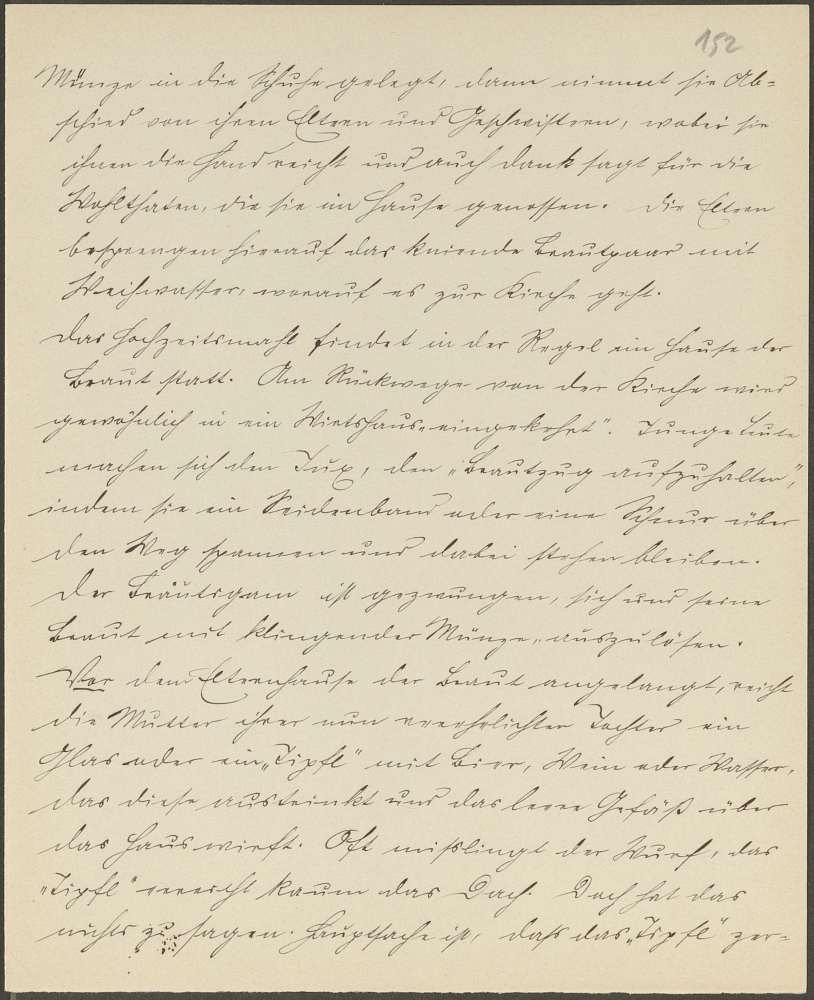 152
Münze in die Schuhe gelegt, dann nimmt sie Ab-
schied von ihren Eltern und Geschwistern, wobei sie
ihnen die Hand reicht und auch Dank sagt für die
Wohlthaten, die sie im Hause genossen. Die Eltern
besprengen hierauf das knieende Brautpaar mit
Weihwasser, worauf es zur Kirche geht.
Das Hochzeitsmahl findet in der Regel im Hause der
Braut statt. Am Rückwege von der Kirche wird
gewöhnlich in ein Wirtshaus „eingekehrt". Junge Leute
machen sich den Jux, den „Brautzug aufzuhalten",
indem sie ein Seidenband oder eine Schnur über
den Weg spannen und dabei stehen bleiben.
Der Bräutigam ist gezwungen, sich und seine
Braut mit klingender Münze „auszulösen.
Vor dem Elternhause der Braut angelangt, reicht
die Mutter ihrer nun verehelichten Tochter ein
Glas oder ein „Tipfl" mit Bier, Wein oder Wasser,
das diese austrinkt und das leere Gefäß über
das Haus wirft. Oft mißlingt der Wurf, das
„Tipfl" erreicht kaum das Dach. Doch hat das
nichts zu sagen. Hauptsache ist, daß das „Tipfl" zer-